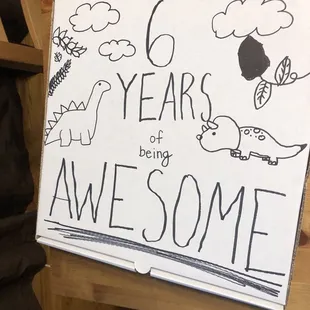 6
YEARS
of
being
AWESOME